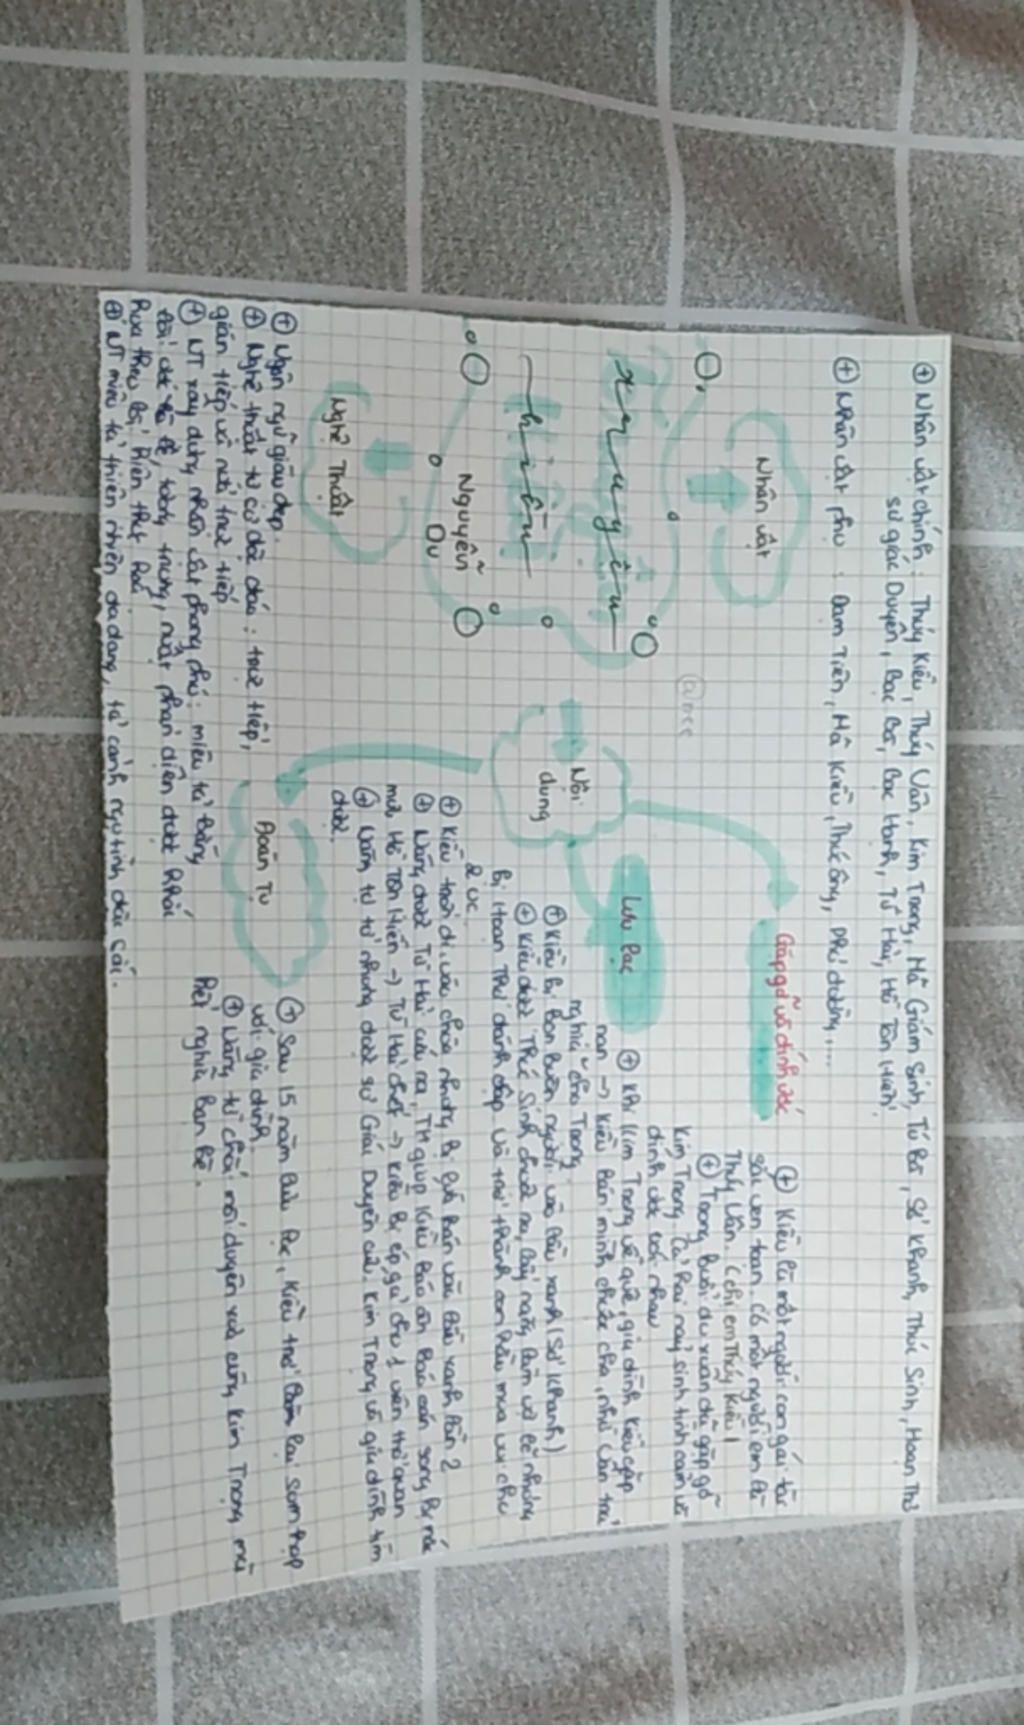 ⊕ Nhân vật chính: Thúy Kiều, Thúy Vân, Kim Trọng, Mã Giám Sinh, Tú Bà, Sở Khanh, Thúc Sinh, Hoạn Thư
sư giác Duyên, Bạc Bà, Bạc Hạnh, Từ Hải, Hồ Tôn Hiến,
⊕ Nhân vật phụ : Đạm Tiên, Mã Kiều, Thúc ông,
Nhân vật
Truyện
Kiều
Nguyễn
Du
Nội
dung
Gặp gỡ và đính ước
⊕ Kiều là một người con gái tài
sắc vẹn toàn. Có một người em là
Thúy Vân. (chị em Thúy Kiều)
⊕ Trong buổi du xuân đã gặp gỡ
Kim Trọng cả hai nảy sinh tình cảm và
đính ước với nhau
Lưu lạc
⊕ Khi Kim Trọng về quê, gia đình Kiều gặp
nạn → Kiều bán mình chuộc cha, nhờ Vân trả
nghĩa cho Trọng.
⊕ Kiều bị bọn buôn người vào lầu xanh (Sở Khanh)
⊕ Kiều được Thúc Sinh chuộc ra, lấy nàng làm vợ lẽ nhưng
bị Hoạn Thư đánh đập và trở thành con hầu mua vui cho
2 vc
⊕ Kiều trốn đi, vào chùa nhưng bị lừa bán vào lầu xanh lần 2
⊕ Nàng được Từ Hải cứu ra, TH giúp Kiều báo ân báo oán song bị mắc
mưu Hồ Tôn Hiến → Từ Hải chết → Kiều bị ép gả cho 1 viên thổ quan
⊕ Nàng tự tử nhưng được sư Giác Duyên cứu. Kim Trọng và gia đình tìm
được.
Đoàn Tụ
⊕ Sau 15 năm lưu lạc, Kiều trở sum họp
với gia đình.
⊕ Nàng từ chối nối duyên xưa cùng Kim Trọng mà
kết nghĩa bạn bè.
Nghệ Thuật
⊕ Ngôn ngữ giàu đẹp.
⊕ Nghệ thuật tự sự độc đáo: trực tiếp,
gián tiếp và nửa trực tiếp
⊕ NT xây dựng nhân vật phong phú: miêu tả bằng
tượng trưng, nhân vật phản diện được khắc
họa theo lối hiện thực hoá
⊕ NT miêu tả thiên nhiên đa dạng, tả cảnh ngụ tình đặc sắc.